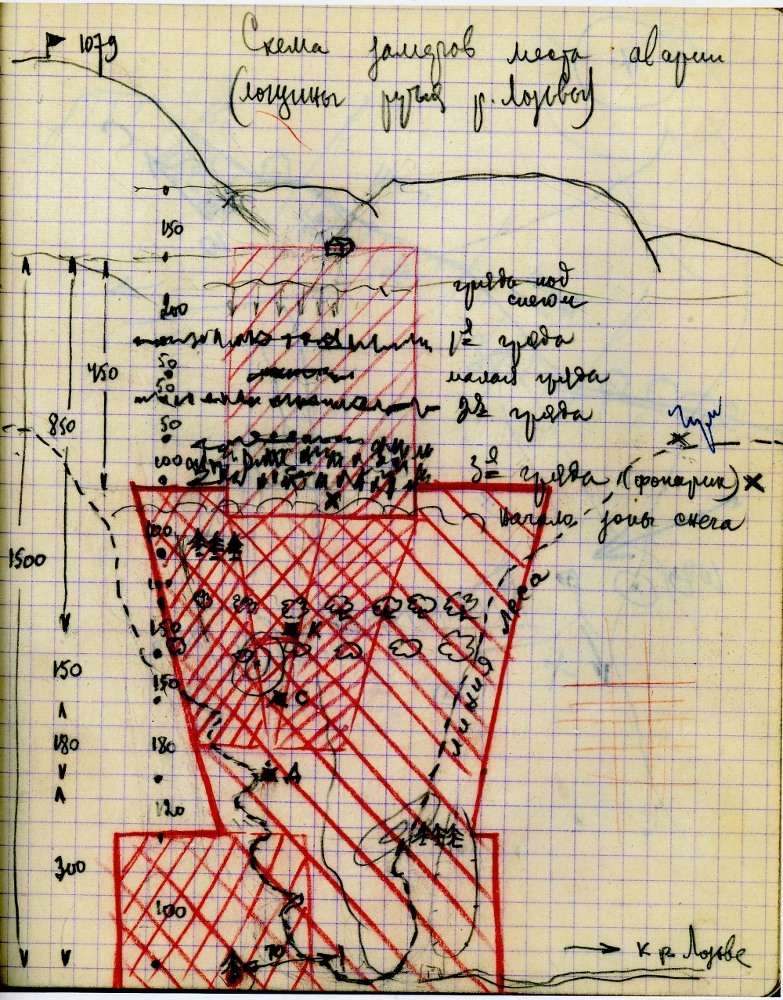 1079
Схема замеров места аварии
(лощины ручья р. Лозьвы)
150
200
гряда под
снегом
1я гряда
50
малая гряда
450
50
2я гряда
850
50
чум
100
3я гряда (фонарик) х
начало зоны снега
120
1500
100
К
150
линия леса
150
150
С
180
180
Д
120
300
100
70
к р Лозьве